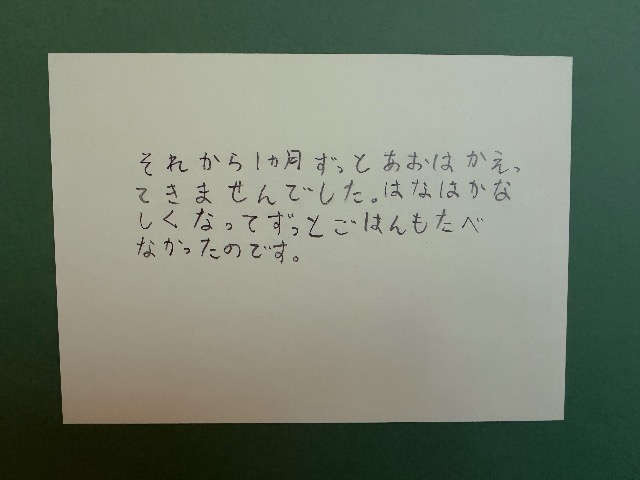 それから1ヵ月ずっとあおはかえっ
てきませんでした。はなはかな
しくなってずっとごはんもたべ
なかったのです。